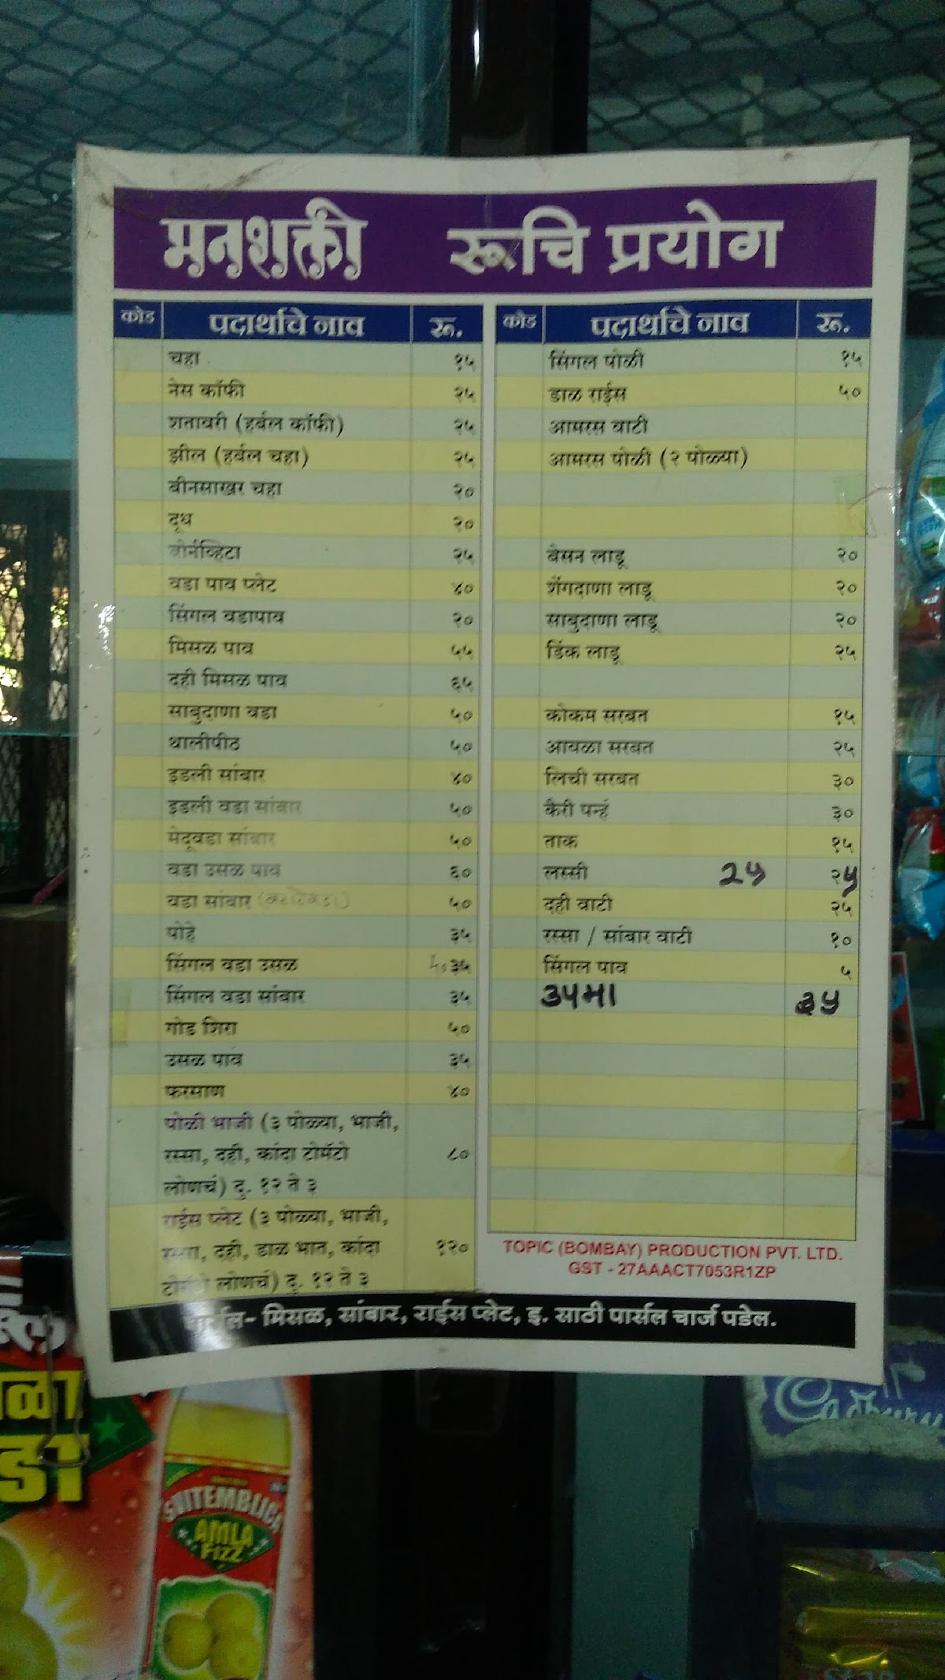 मनशक्ती रूचि प्रयोग
कोड पदार्थाचे नाव रू.
चहा १५
नेस कॉफी २५
शतावरी (हर्बल कॉफी) २५
झील (हर्बल चहा) २५
बीनसाखर चहा २०
दूध २०
बोर्नव्हिटा २५
वडा पाव प्लेट ४०
सिंगल वडापाव २०
मिसळ पाव ५५
दही मिसळ पाव ६५
साबुदाणा वडा ५०
थालीपीठ ५०
इडली सांबार ४०
इडली वडा सांबार ५०
मेदूवडा सांबार ५०
वडा उसळ पाव ६०
वडा सांबार ५०
पोहे ३५
सिंगल वडा उसळ ३५
सिंगल वडा सांबार ३५
गोड शिरा ५०
उसळ पाव ३५
फरसाण ४०
पोळी भाजी (३ पोळ्या, भाजी,
रस्सा, दही, कांदा टोमॅटो ८०
लोणचं) दु. १२ ते ३
राईस प्लेट (३ पोळ्या, भाजी,
रस्सा, दही, डाळ भात, कांदा १२०
टोमॅटो लोणचं) दु. १२ ते ३
कोड पदार्थाचे नाव रू.
सिंगल पोळी १५
डाळ राईस ५०
आमरस वाटी
आमरस पोळी (२ पोळ्या)
बेसन लाडू २०
शेंगदाणा लाडू २०
साबुदाणा लाडू २०
डिंक लाडू २५
कोकम सरबत १५
आवळा सरबत २५
लिची सरबत ३०
कैरी पन्हं ३०
ताक १५
लस्सी २५ २५
दही वाटी २५
रस्सा / सांबार वाटी १०
सिंगल पाव ५
उपमा ३५
TOPIC (BOMBAY) PRODUCTION PVT. LTD.
GST - 27AAACT7053R1ZP
पार्सल- मिसळ, सांबार, राईस प्लेट, इ. साठी पार्सल चार्ज पडेल.
SVITEMBLICA
AMLA
FIZZ
Cadbury